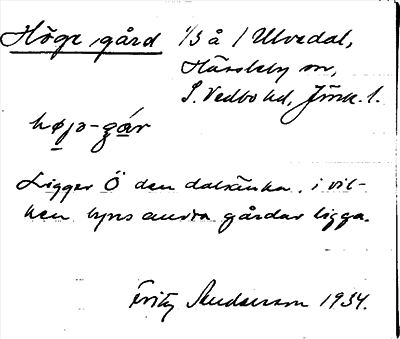 Höge gård 1/3 å / Ulvedal,
Hässleby sn,
S. Vedbo hd, Jönk. l.
højə-gár
Ligger Ö den dalsänka, i vil-
ken byns andra gårdar ligga.
Fritz Andersson 1934.